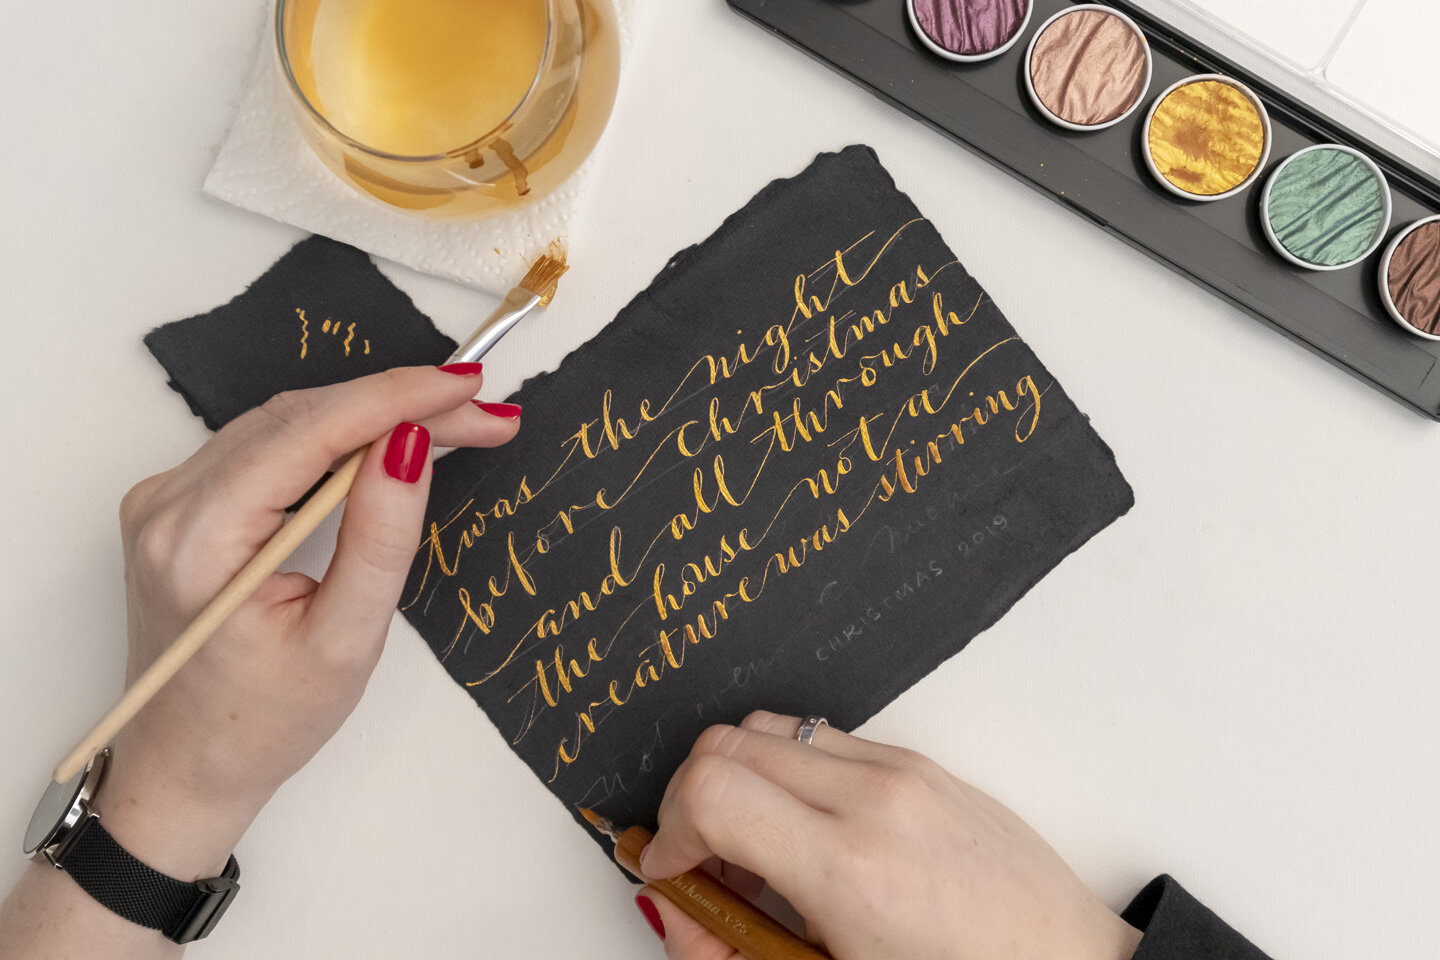 twas the night
before christmas
and all through
the house not a
creature was stirring
not even a mouse
CHRISTMAS 2019
T-25